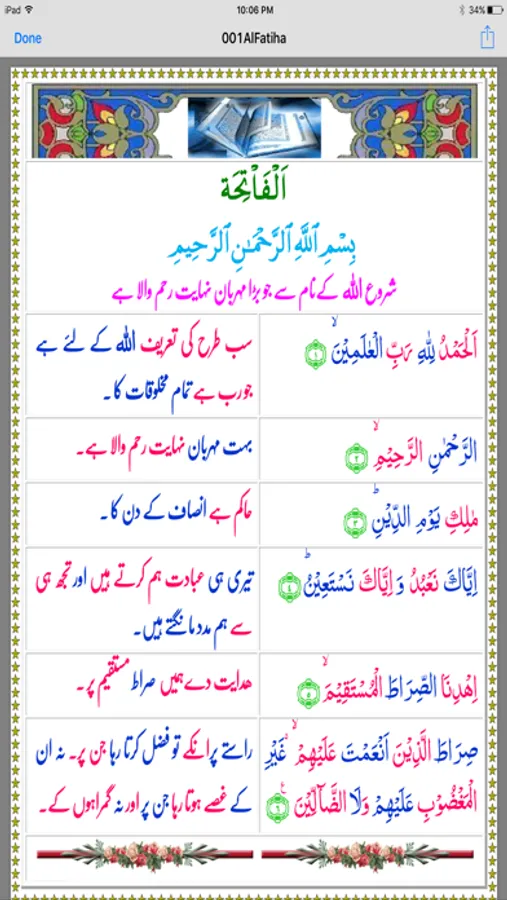 iPad 10:06 PM 34%
Done 001AlFatiha
اَلْفَاْتِحَة
بِسْمِ ٱللَّهِ ٱلرَّحْمَٰنِ ٱلرَّحِيمِ
شروع اللہ کے نام سے جو بڑا مہربان نہایت رحم والا ہے
اَلْحَمْدُ لِلّٰهِ رَبِّ الْعٰلَمِيْنَ ۙ ۱
سب طرح کی تعریف اللہ کے لئے ہے
جو رب ہے تمام مخلوقات کا۔
الرَّحْمٰنِ الرَّحِيْمِ ۙ ۲
بہت مہربان نہایت رحم والا ہے۔
مٰلِكِ يَوْمِ الدِّيْنِ ؕ ۳
حاکم ہے انصاف کے دن کا۔
اِيَّاكَ نَعْبُدُ وَ اِيَّاكَ نَسْتَعِيْنُ ؕ ۴
تیری ہی عبادت ہم کرتے ہیں اور تجھ ہی
سے ہم مدد مانگتے ہیں۔
اِهْدِنَا الصِّرَاطَ الْمُسْتَقِيْمَ ۙ ۵
ھدایت دے ہمیں صراط مستقیم پر۔
صِرَاطَ الَّذِيْنَ اَنْعَمْتَ عَلَيْهِمْ ۙ غَيْرِ
الْمَغْضُوْبِ عَلَيْهِمْ وَلَا الضَّآلِّيْنَ ۶
راستے پر انکے تو فضل کرتا رہا جن پر۔ نہ ان
کے غصے ہوتا رہا جن پر اور نہ گمراہوں کے۔